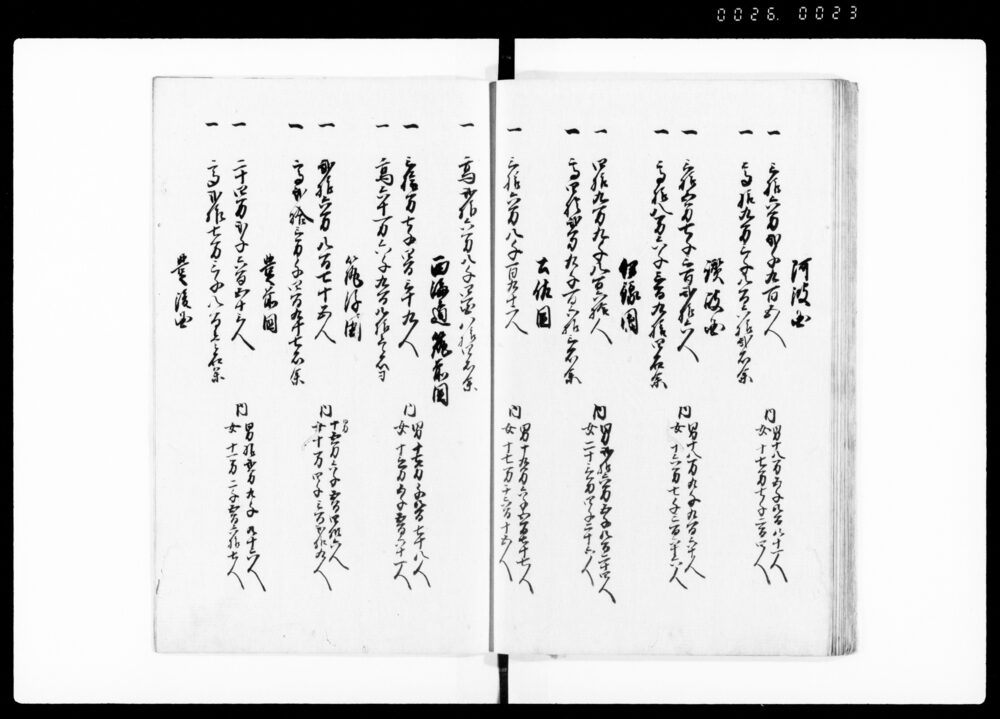 0026. 0023
阿波国
一 三拾六万弐千九百五人
内 男十八万五千八百八十一人
女 十七万七千二百四人
一 高拾九万三千八百六拾弐石余
讃岐国
一 三拾五万七千三百弐拾六人
内 男十八万九千九百六十人
女 十六万七千三百二十六人
一 高拾八万六千三百九拾四石余
伊豫国
一 四拾九万九千八百六拾人
内 男弐拾六万五千八百二十四人
女 二十三万四千三十六人
一 高四拾弐万九千百六拾三石余
土佐国
一 三拾六万八千百九十二人
内 男十九万六千五百七十七人
女 十七万千六百十五人
一 高弐拾六万八千四百八拾四石余
西海道筑前国
一 三拾万七千四百三十九人
内 男十七万千八百七十八人
女 十三万五千五百六十一人
一 高六十万六千九百八拾三石
筑後国
一 弐拾六万八百七十五人
内 男十五万六千五百四拾六人
女十万四千三百弐拾九人
一 高弐拾三万千四百九十七石余
豊前国
一 二十四万弐千六百五十三人
内 男拾弐万九千八十六人
女 十一万二千五百六拾七人
一 高弐拾七万三千八百石余
豊後国